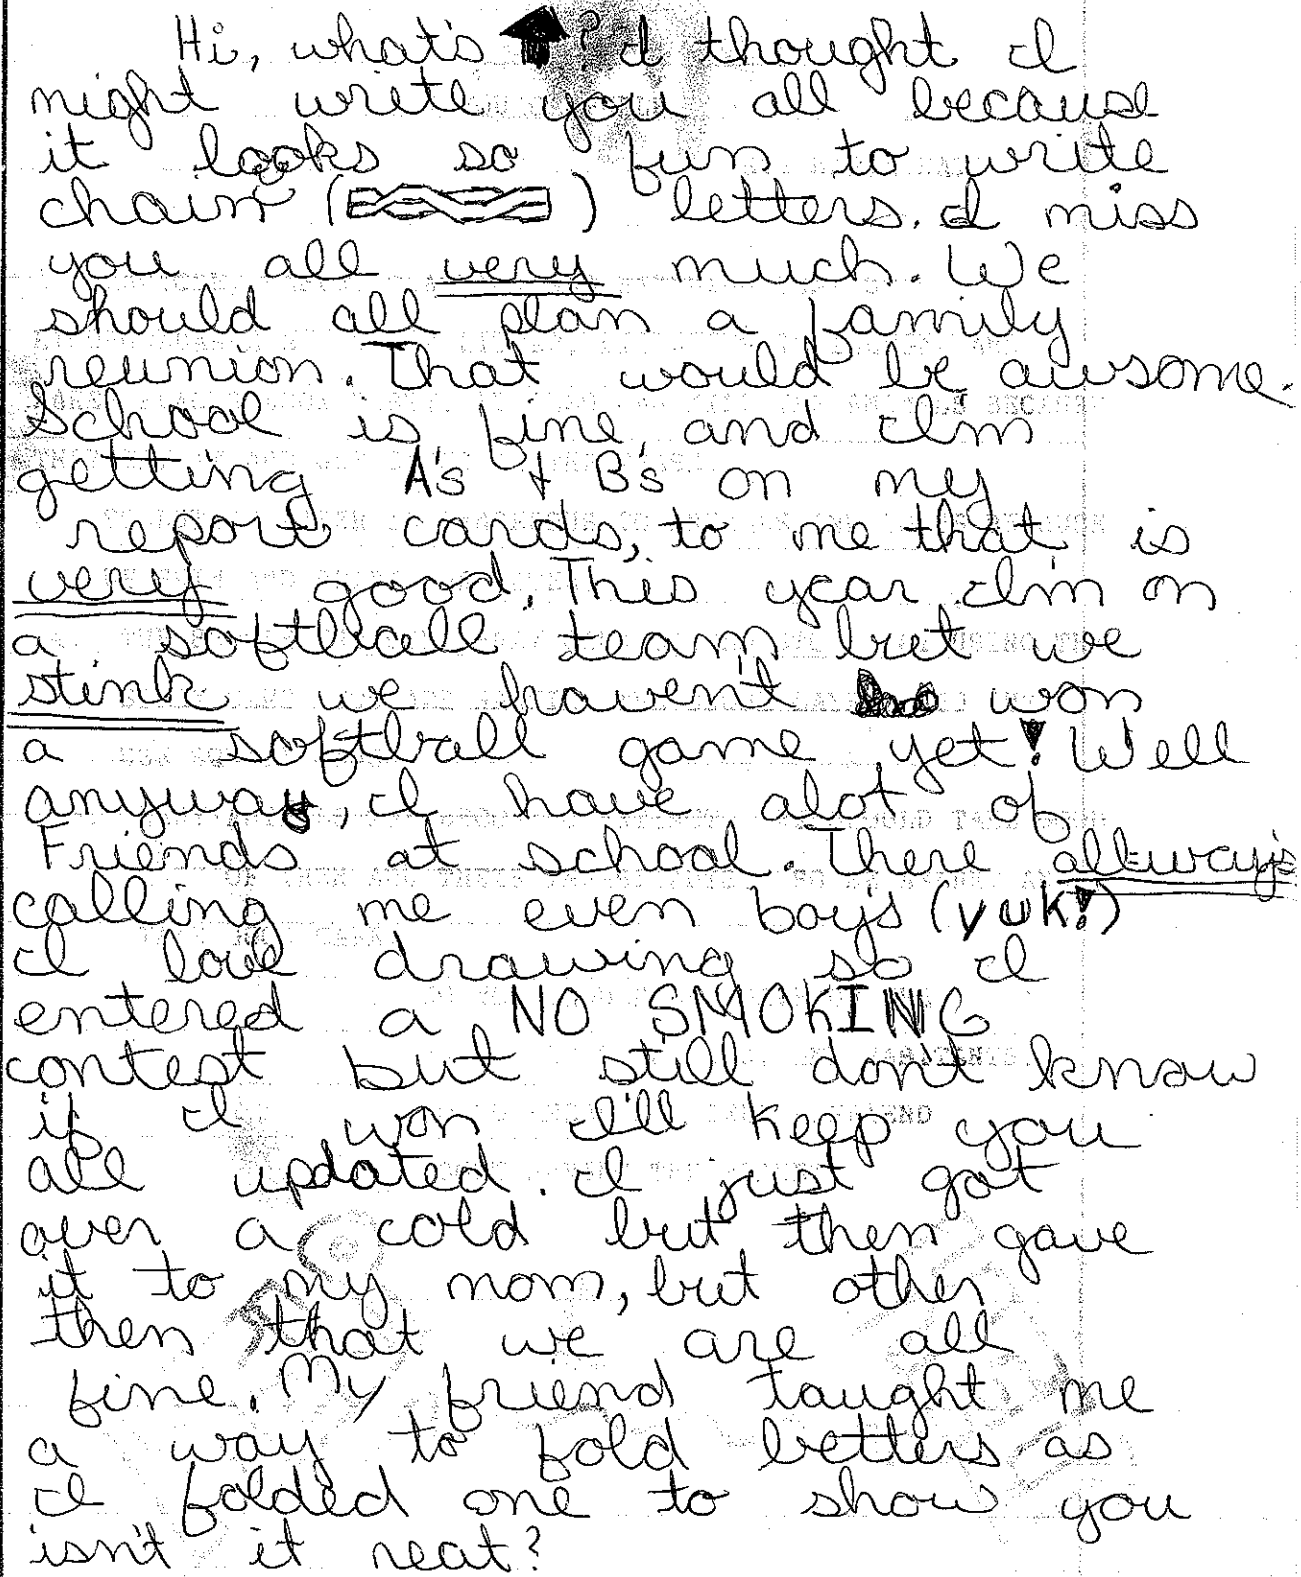 Hi, what's ? I thought I
might write you all because
it looks so fun to write
chain ( ) letters. I miss
you all very much. We
should all plan a family
reunion. That would be awsome.
School is fine, and I'm
getting A's + B's on my
report cards, to me that is
very good. This year I'm on
a softball team but we
stink we haven't won
a softball game yet! Well
anyway, I have alot of
Friends at school. There allways
calling me even boys (yuk!)
I love drawing so I
entered a NO SMOKING
contest but still don't know
if I won I'll keep you
all updated. I just got
over a cold but then gave
it to my mom, but other
then that we are all
fine. My friend taught me
a way to fold letters so
I folded one to show you
isn't it neat?